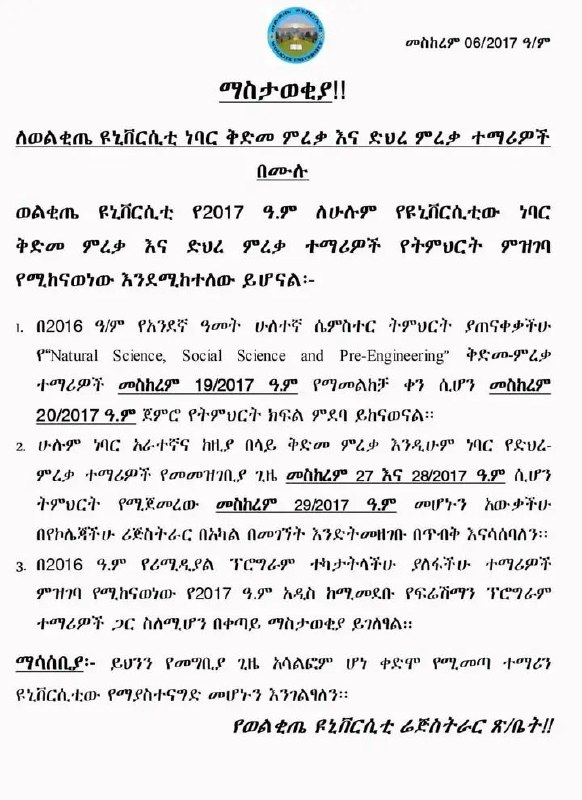 መስከረም 06/2017 ዓ/ም
ማስታወቂያ!!
ለወልቂጤ ዩኒቨርሲቲ ነባር ቅድመ ምረቃ እና ድህረ ምረቃ ተማሪዎች
በሙሉ
ወልቂጤ ዩኒቨርሲቲ የ2017 ዓ.ም ለሁሉም የዩኒቨርሲቲው ነባር
ቅድመ ምረቃ እና ድህረ ምረቃ ተማሪዎች የትምህርት ምዝገባ
የሚከናወነው እንደሚከተለው ይሆናል፡-
1. በ2016 ዓ/ም የአንደኛ ዓመት ሁለተኛ ሴምስተር ትምህርት ያጠናቀቃችሁ
የ“Natural Science, Social Science and Pre-Engineering” ቅድመ-ምረቃ
ተማሪዎች መስከረም 19/2017 ዓ.ም የማመልከቻ ቀን ሲሆን መስከረም
20/2017 ዓ.ም ጀምሮ የትምህርት ክፍል ምደባ ይከናወናል፡፡
2. ሁሉም ነባር አራተኛና ከዚያ በላይ ቅድመ ምረቃ እንዲሁም ነባር የድህረ-
ምረቃ ተማሪዎች የመመዝገቢያ ጊዜ መስከረም 27 እና 28/2017 ዓ.ም ሲሆን
ትምህርት የሚጀመረው መስከረም 29/2017 ዓ.ም መሆኑን አውቃችሁ
በየኮሌጃችሁ ሪጅስትራር በአካል በመገኘት እንድትመዘገቡ በጥብቅ እናሳስባለን፡፡
3. በ2016 ዓ.ም የሪሚዲያል ፕሮግራም ተከታትላችሁ ያለፋችሁ ተማሪዎች
ምዝገባ የሚከናወነው የ2017 ዓ.ም አዲስ ከሚመደቡ የፍሬሽማን ፕሮግራም
ተማሪዎች ጋር ስለሚሆን በቀጣይ ማስታወቂያ ይገለፃል፡፡
ማሳሰቢያ፡- ይህንን የመግቢያ ጊዜ አሳልፎም ሆነ ቀድሞ የሚመጣ ተማሪን
ዩኒቨርሲቲው የማያስተናግድ መሆኑን እንገልፃለን፡፡
የወልቂጤ ዩኒቨርሲቲ ሬጅስትራር ጽ/ቤት!!